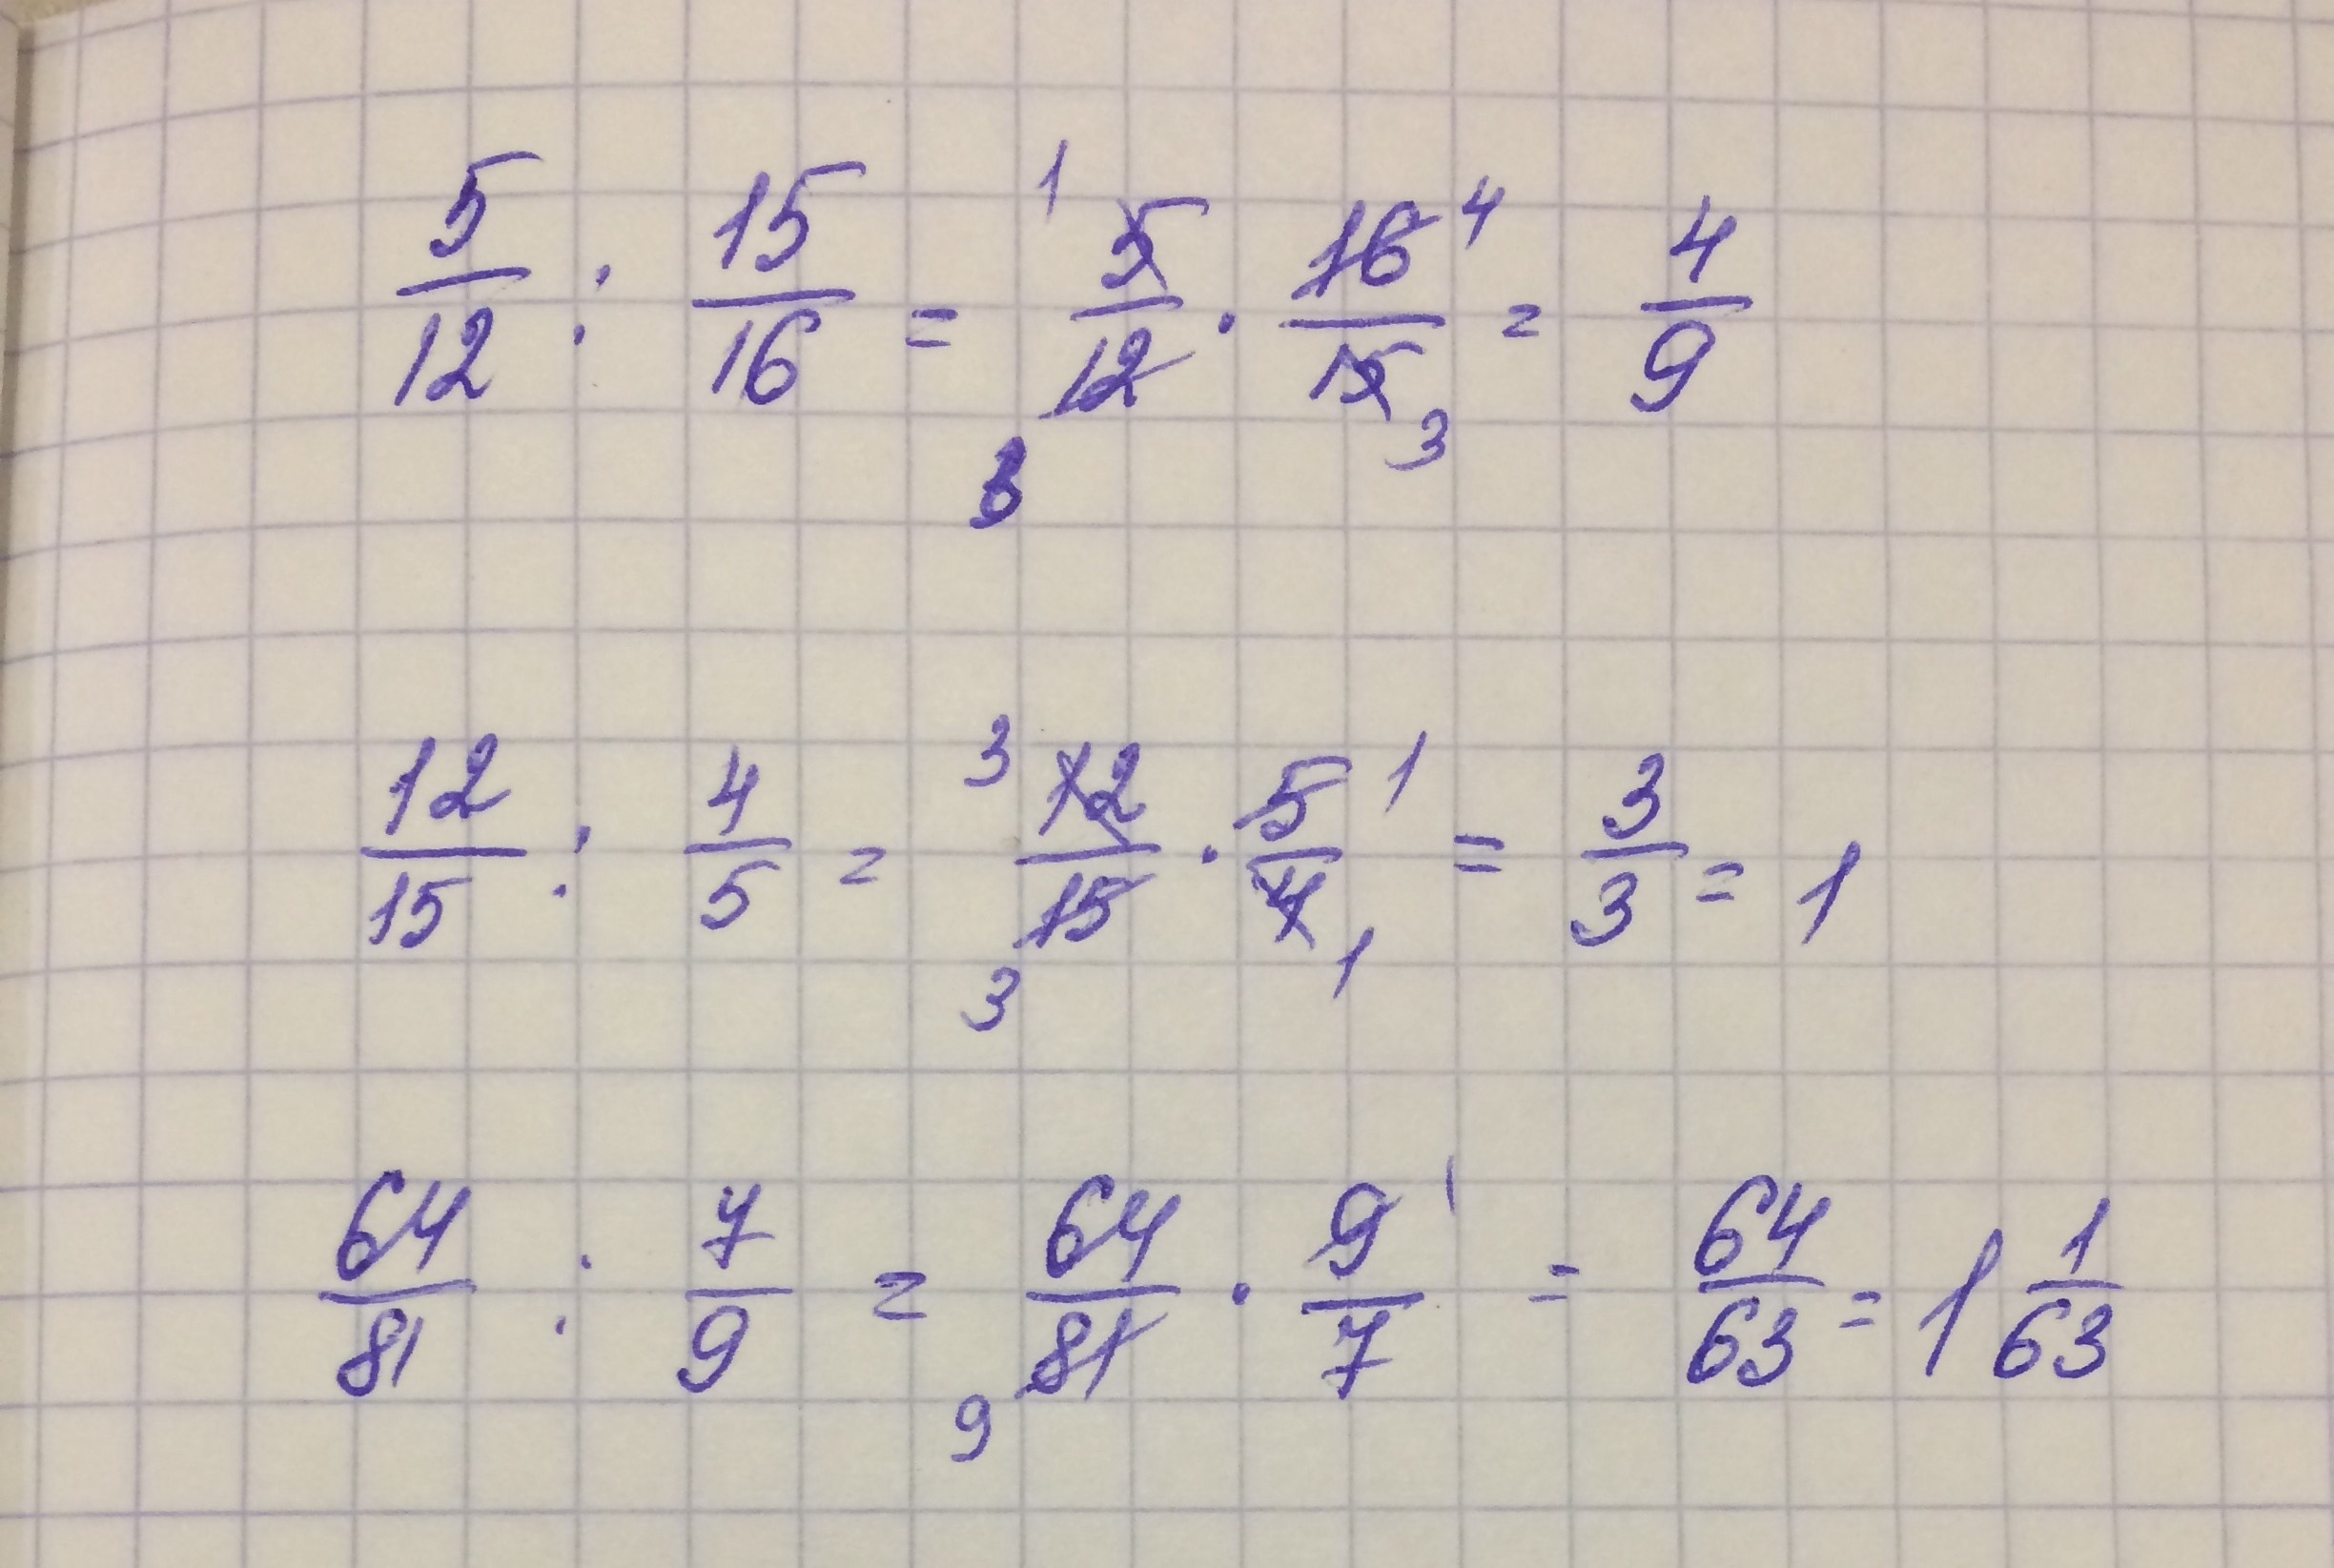 5/12 : 15/16 = ¹5/12₃ · 16⁴/15₃ = 4/9
12/15 : 4/5 = ³12/15₃ · 5¹/4₁ = 3/3 = 1
64/81 : 7/9 = 64/81₉ · 9¹/7 = 64/63 = 1 1/63